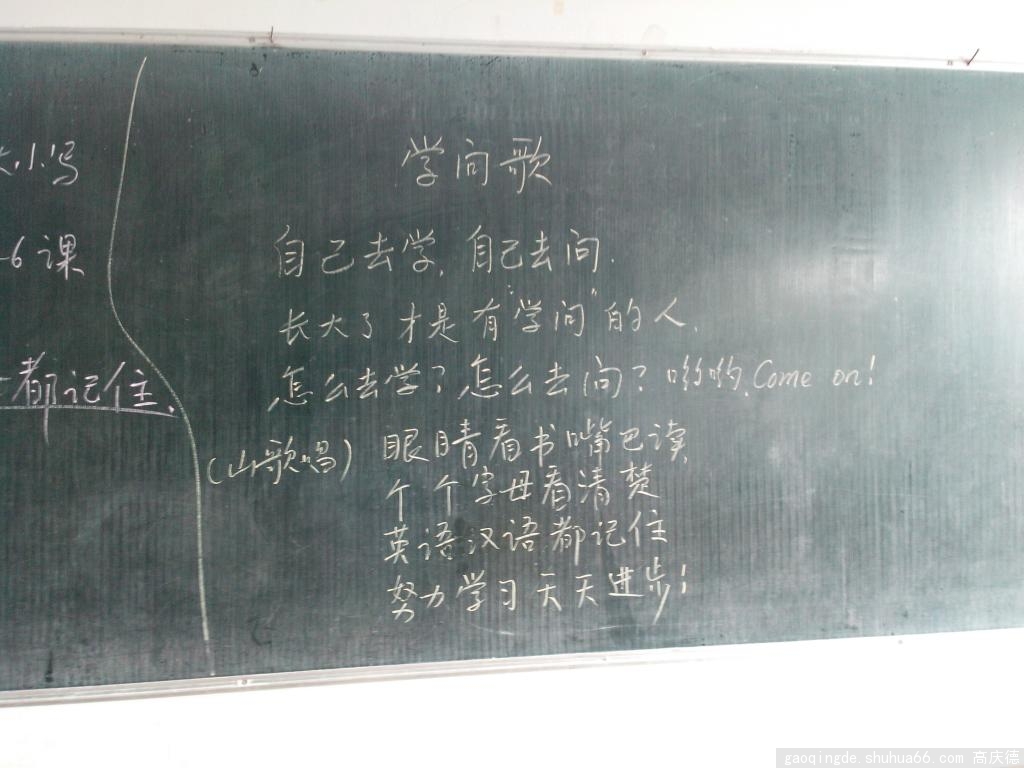 大小写
6课
都记住.
学问歌
自己去学, 自己去问.
长大了才是有"学问"的人.
怎么去学?怎么去问?哟哟, Come on!
(山歌唱) 眼睛看书嘴巴读
个个字母看清楚
英语汉语都记住
努力学习天天进步!
gaoqingde.shuhua66.com 高庆德